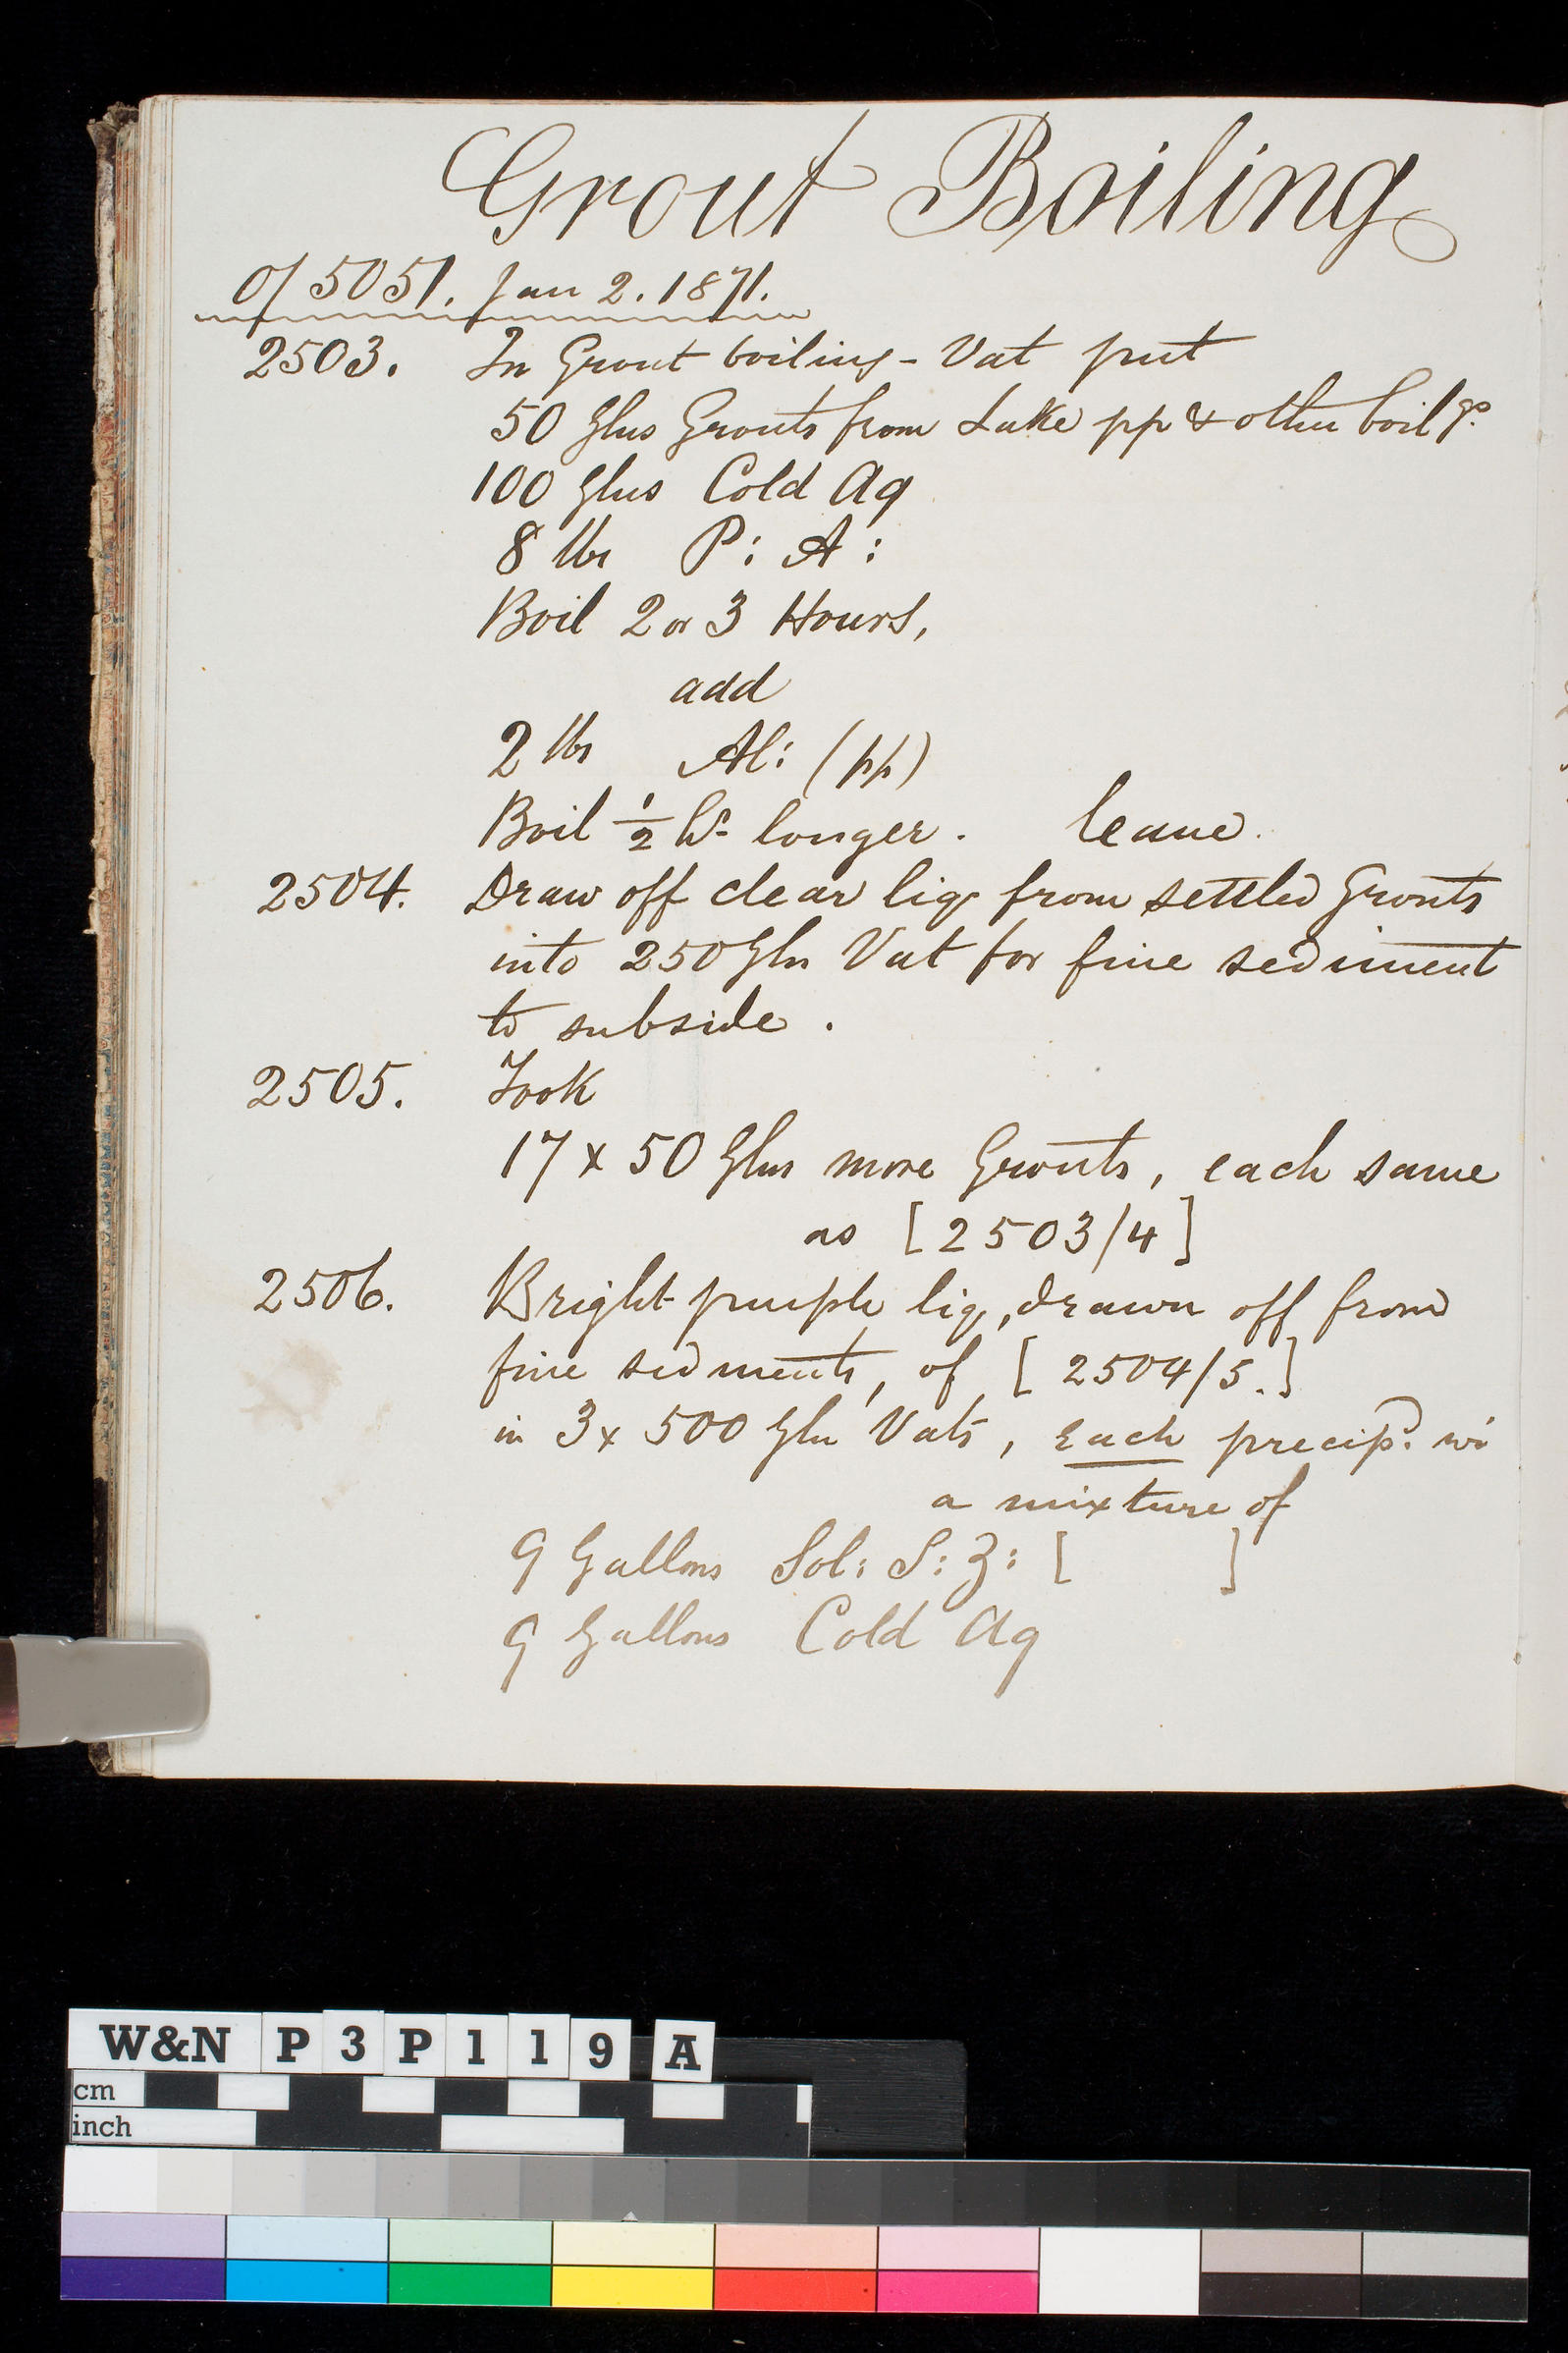 Grout Boiling
O/5051. Jan 2. 1871.
2503. In Grout boiling-Vat put
50 Glns Grouts from Lake pp & other boilgs.
100 Glns Cold Aq
8 lbs P: A:
Boil 2 or 3 Hours,
add
2 lbs Al: (pp)
Boil 1/2 hr longer. leave.
2504. Draw off clear liq from settled Grouts
into 250 Gln Vat for fine sediment
to subside.
2505. Took
17 x 50 Glns more Grouts, each same
as [2503/4]
2506. Bright purple liq, drawn off from
fine sedments, of [2504/5.]
in 3 x 500 Gln Vats, Each precipd. wi
a mixture of
9 Gallons Sol: S: Z: [ ]
9 Gallons Cold Aq
W&N P3P119 A
cm
inch